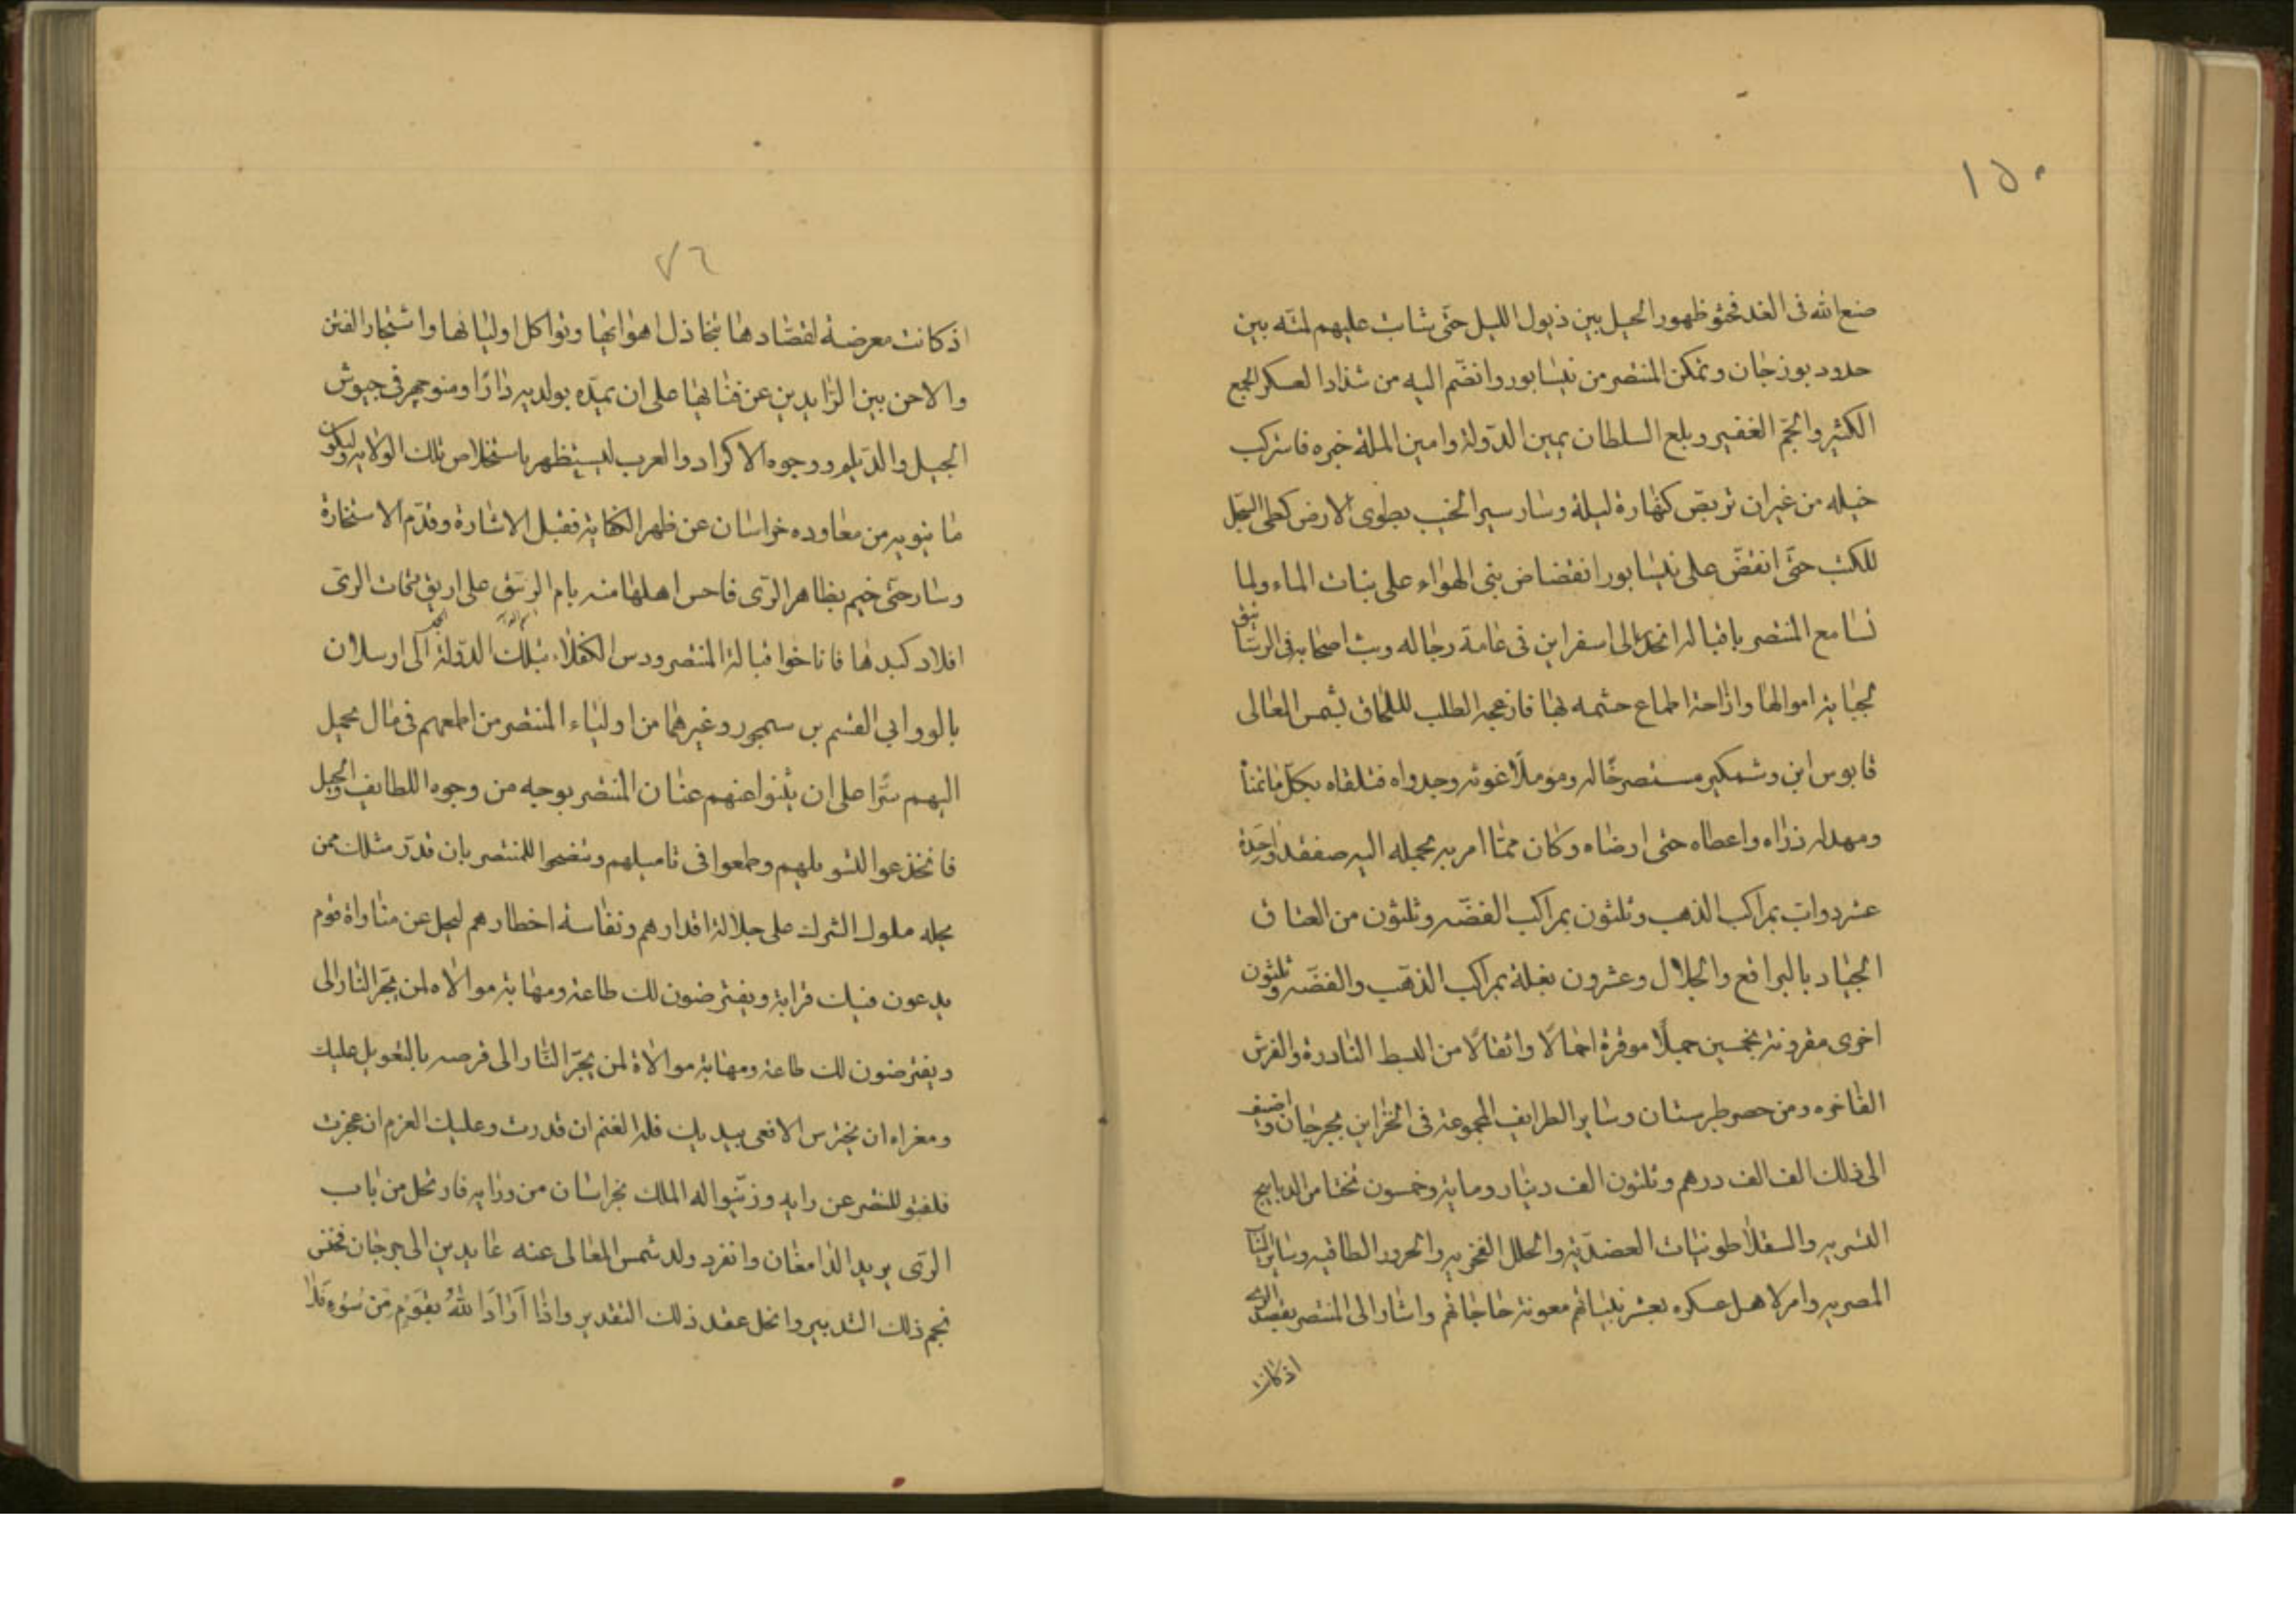 ١٥٠
صنع الله فى الغد فحثو ظهور الخيل بين ذيول الليل حتّى بثاث عليهم لمته بين
حدود بوزجان وتمكن المنتصر من نيسابور وانضّم اليه من شذاذ العسكر الجمع
الكثير والجّم الغفير وبلغ السلطان يمين الدّولة وامين الملة خبره فاستركب
خيله من غير ان تربص كنهاره ليلة وسار سير الخبب يطوى الارض كطى السّجل
للكتب حتّى انقضّ على نيسابور انقضاض بنى الهواء على بنات الماء ولما
تسامع المنتصر باقباله انحاز الى اسفراين فى عامة رجاله وبث اصحابه فى الرستاق
لجباية اموالها وازاحة اطماع حشمه بها فازعجه الطلب لللحاق بشمس المعالى
قابوس ابن وشمكير مستصرخًا له ومؤملًا غوثه وجدواه فتلقاه بكلّ ما تمنا
ومهد له ذراه واعطاه حتى ارضاه وكان ممّا امر به بحمله اليه صفقة واحدة
عشر دواب بمراكب الذهب وثلثون بمراكب الفضّه وثلثون من العتاق
الجياد بالبراقع والجلال وعشرون بغلة بمراكب الذهب والفضّه وثلثون
اخرى مقرونة بخمسين جملًا موقرة احمالًا واثقالًا من البسط النادرة والفرش
الفاخره ومن حصر طبرستان وساير الطرايف المجموعة فى الخزاين بجرجان واضيف
الى ذلك الف الف درهم وثلثون الف دينار ومايه وخمسون تختا من الديابيج
التستريه والسقلاطونيات العضديّة والحلل الفخريه والخزوز الطاقيه وساير الثيا
المصريه وامر لاهل عسكره بعشرينياتهم معونة حاجاتهم واشار الى المنتصر بقصد الرى
اذ كانت
٧٦
اذ كانت معرضة لقصّادها بتخاذل اهوائها وتواكل اوليائها واشتجار الفتن
والاحن بين الزايدين عن فنائها على ان يمدّه بولديه دارا ومنوجهر فى جيوش
الجيل والدّيلم ووجوه الاكراد والعرب ليستظهر باستخلاص تلك الولايه وليكون
ما ينويه من معاوده خراسان عن ظهر الكفاية فقبل الاشارة وقدّم الاستخارة
وسار حتى خيم بظاهر الرّى فاحس اهلها منه بام الربيق على اريق فماث الرى
افلاد كبدها فاناخوا قبالة المنتصر ودس الكفلاء بتلك الدّولة الى ارسلان
بالو وابي القسم بن سمجور وغيرهما من اولياء المنتصر من اطعهم فى مال يحمل
اليهم سرّا على ان يثنوا عنهم عنان المنتصر بوجه من وجوه اللطايف والحيل
فانخذعوا لتسويلهم وطمعوا فى تاميلهم وتنصحوا للمنتصر بان قدر مثلك ممن
يجله ملوك الشرك على جلالة اقدارهم ونفاسة اخطارهم ليجل عن مناواة قوم
يدعون فيك قرابة ويفترضون لك طاعة ومهابة موالاه لمن يجّر النار الى
ويفترضون لك طاعة ومهابة موالاة لمن يجّر النّار الى قرصه بالتعويل عليك
ومغراه ان يخترس الافعى بيديك فله الغنم ان قدرت وعليك الغرم ان عجزت
فلفتو المنتصر عن رايه وزيّنوا له الملك بخراسان من ورايه فارتحل من باب
الرّى يريد الدامغان وانفرد ولد شمس المعالى عنه عايدين الى جرجان فخفى
نجم ذلك التدبير وانحل عقد ذلك التقدير واذا اراد الله بقوم من سوء فلا